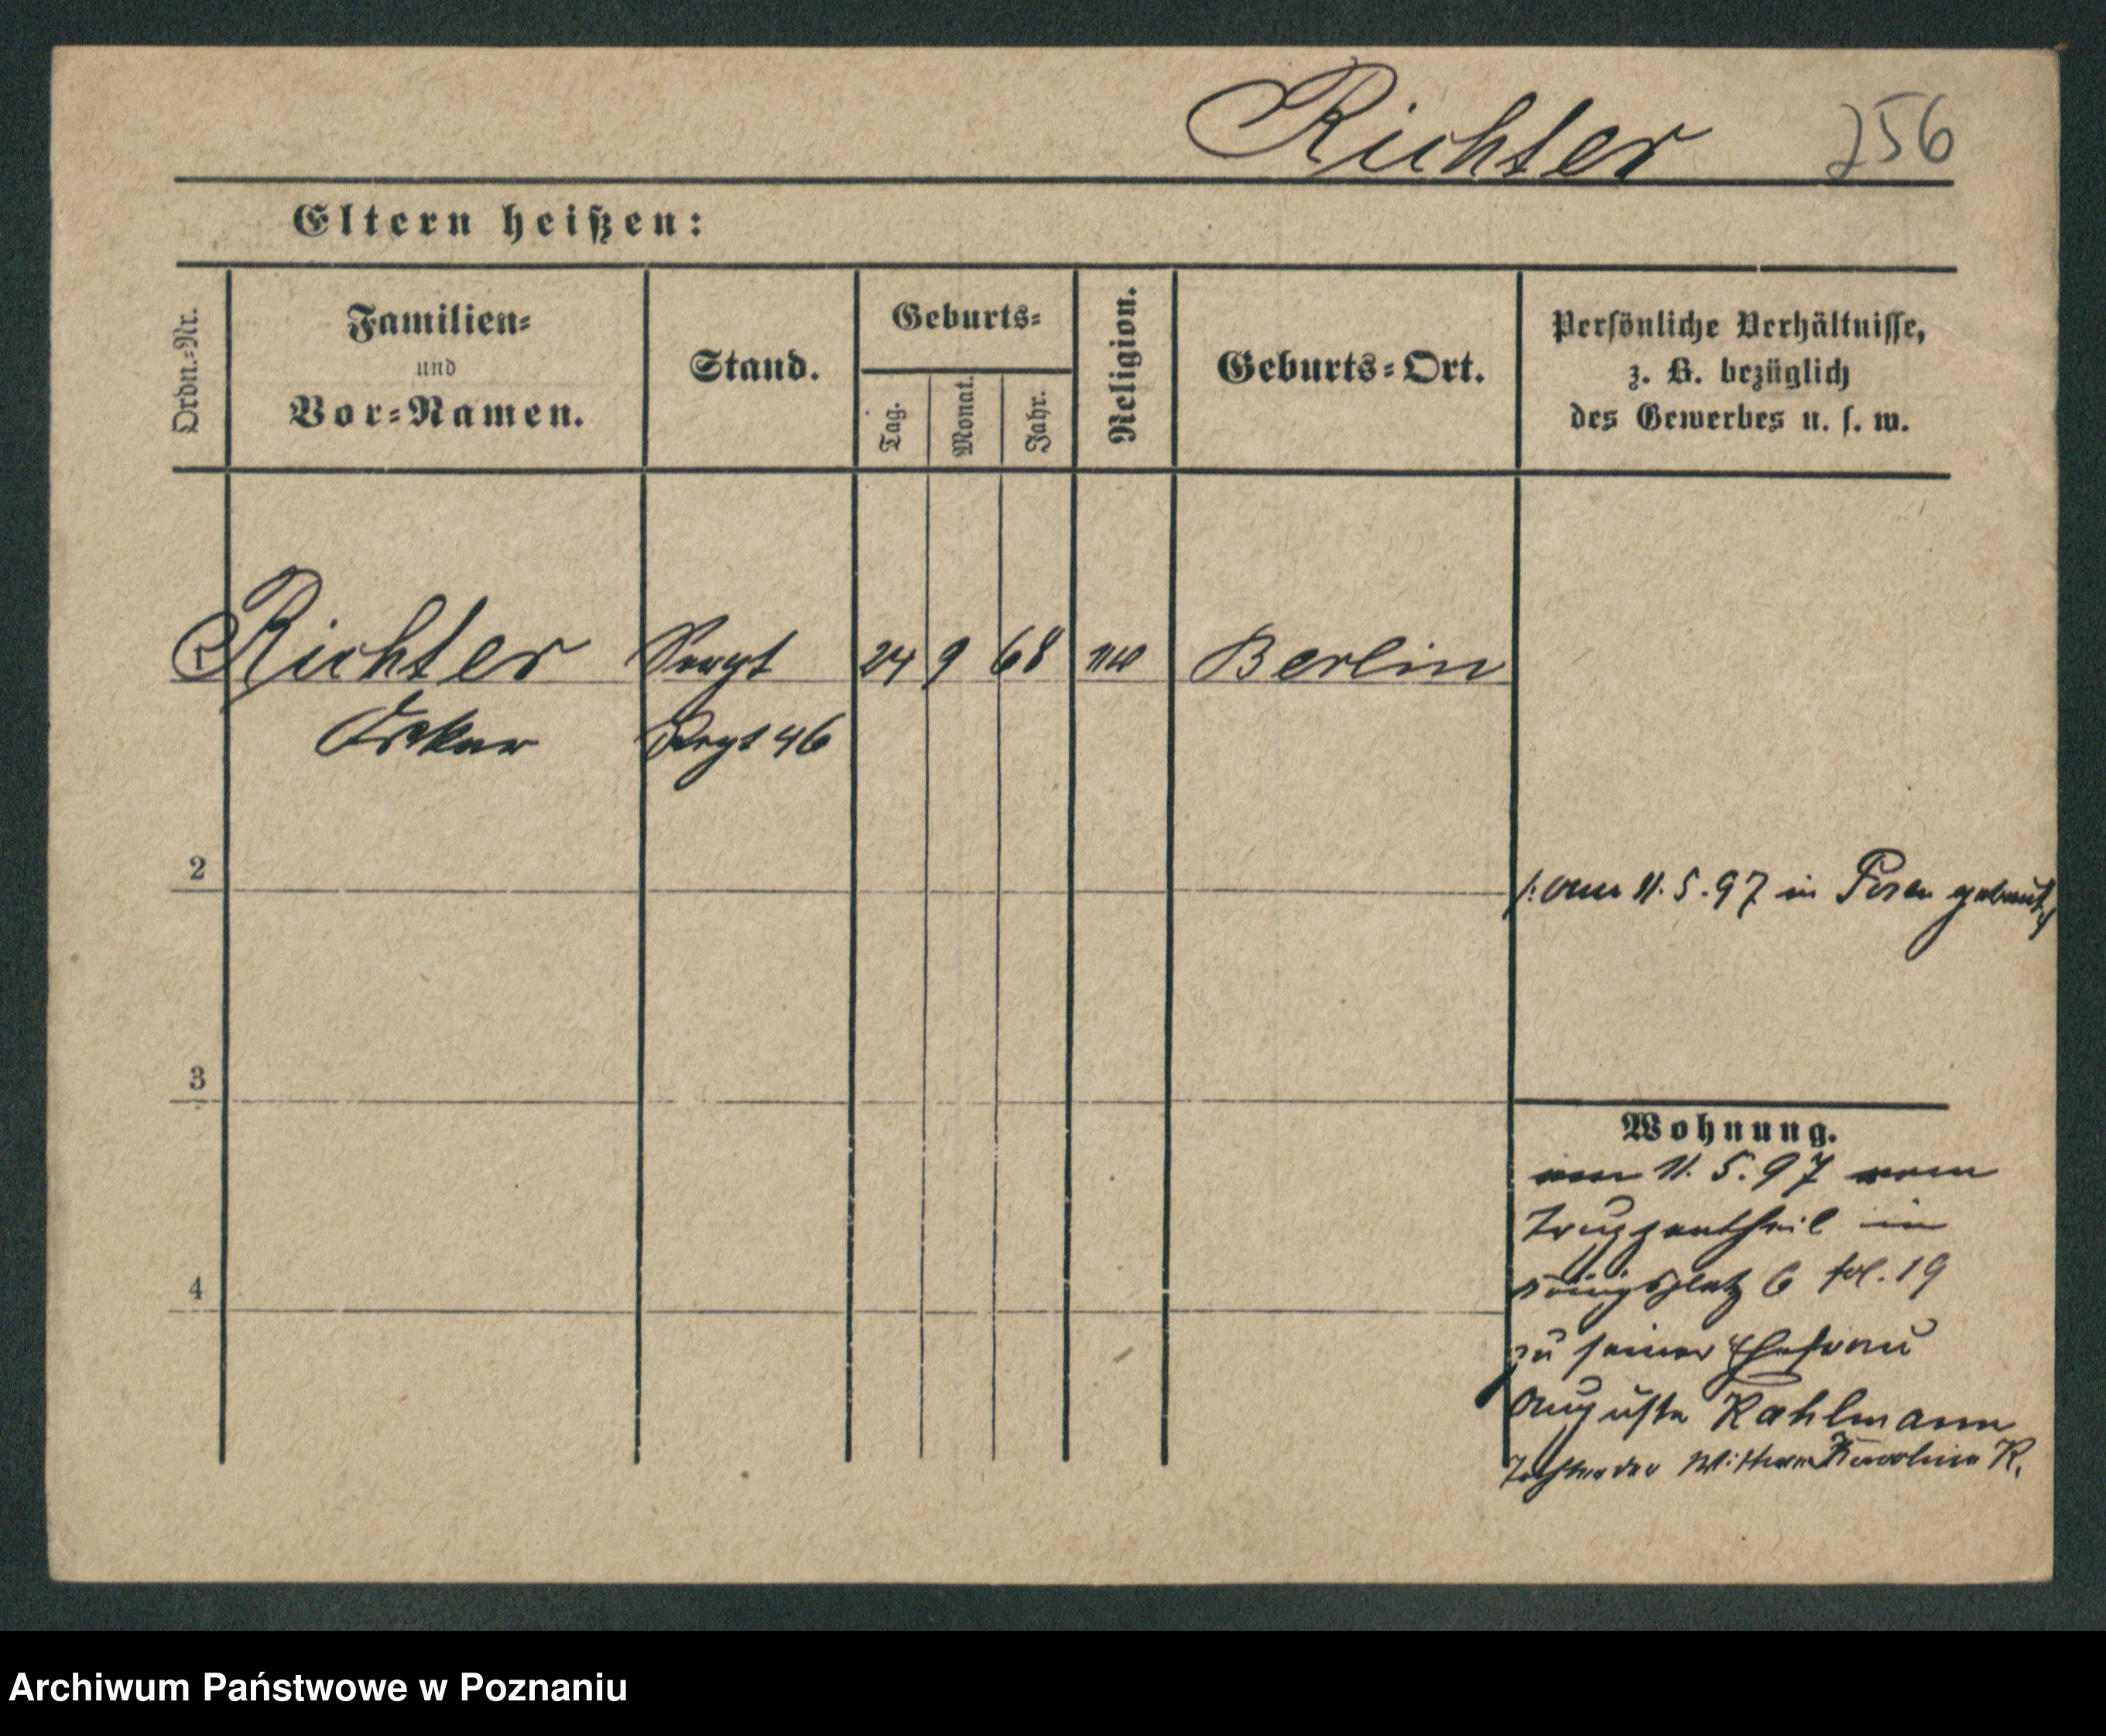 Richter 256
Eltern heißen:
Ordn.-Nr.
Familien-
und
Vor-Namen.
Stand.
Geburts-
Tag.
Monat.
Jahr.
Religion.
Geburts-Ort.
Persönliche Verhältnisse,
z. B. bezüglich
des Gewerbes u. s. w.
1 Richter Sergt 24 9 68 Berlin
Oskar Regt 46
2
/: am 11. 5. 97 in Posen getraut :/
3
Wohnung.
am 11. 5. 97 vom
Truppentheil in
Königsplatz 6 fol. 19
4
zu seiner Ehefrau
Auguste Kahlmann
Tochter der Wittwe Karoline K.
Archiwum Państwowe w Poznaniu